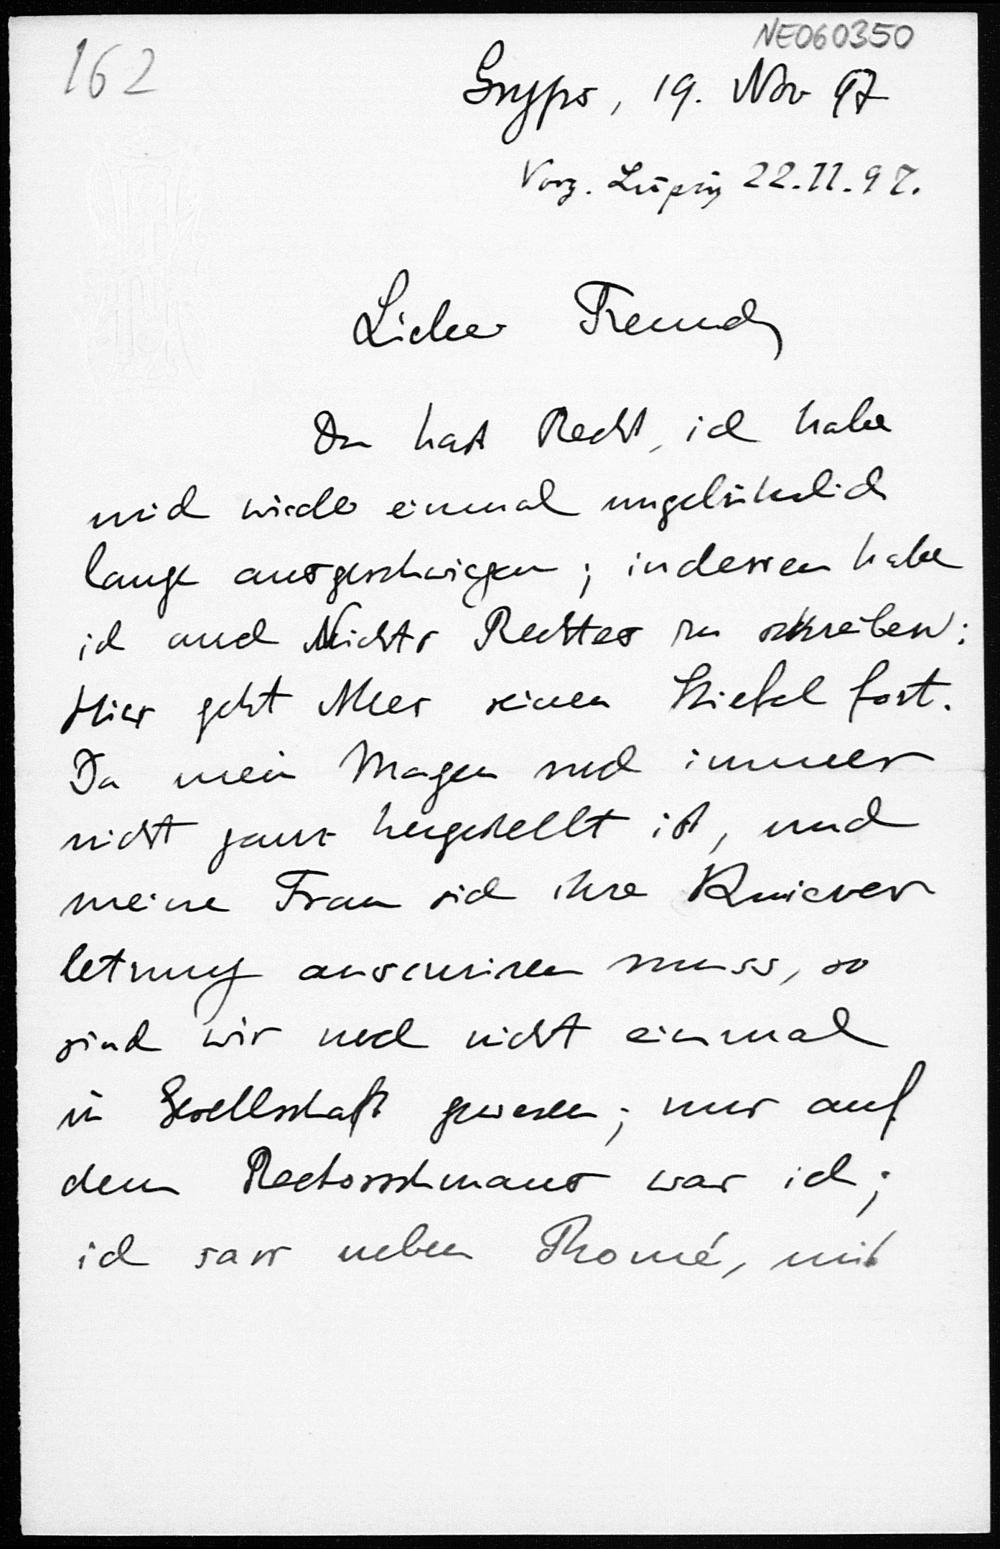 NE060350
162
Gryps, 19. Nov 97
Vorz. Leipzig 22.11.97.
Lieber Freund,
Du hast Recht, ich habe
mich wieder einmal ungebührlich
lange ausgeschwiegen; indessen habe
ich auch Nichts Rechtes zu schreiben:
Hier geht Alles seinen Stiefel fort.
Da mein Magen noch immer
nicht ganz hergestellt ist, und
meine Frau sich ihre Kniever
letzung auscuriren muss, so
sind wir noch nicht einmal
in Gesellschaft gewesen; nur auf
dem Rectorschmaus war ich;
ich sass neben Thomé, mit